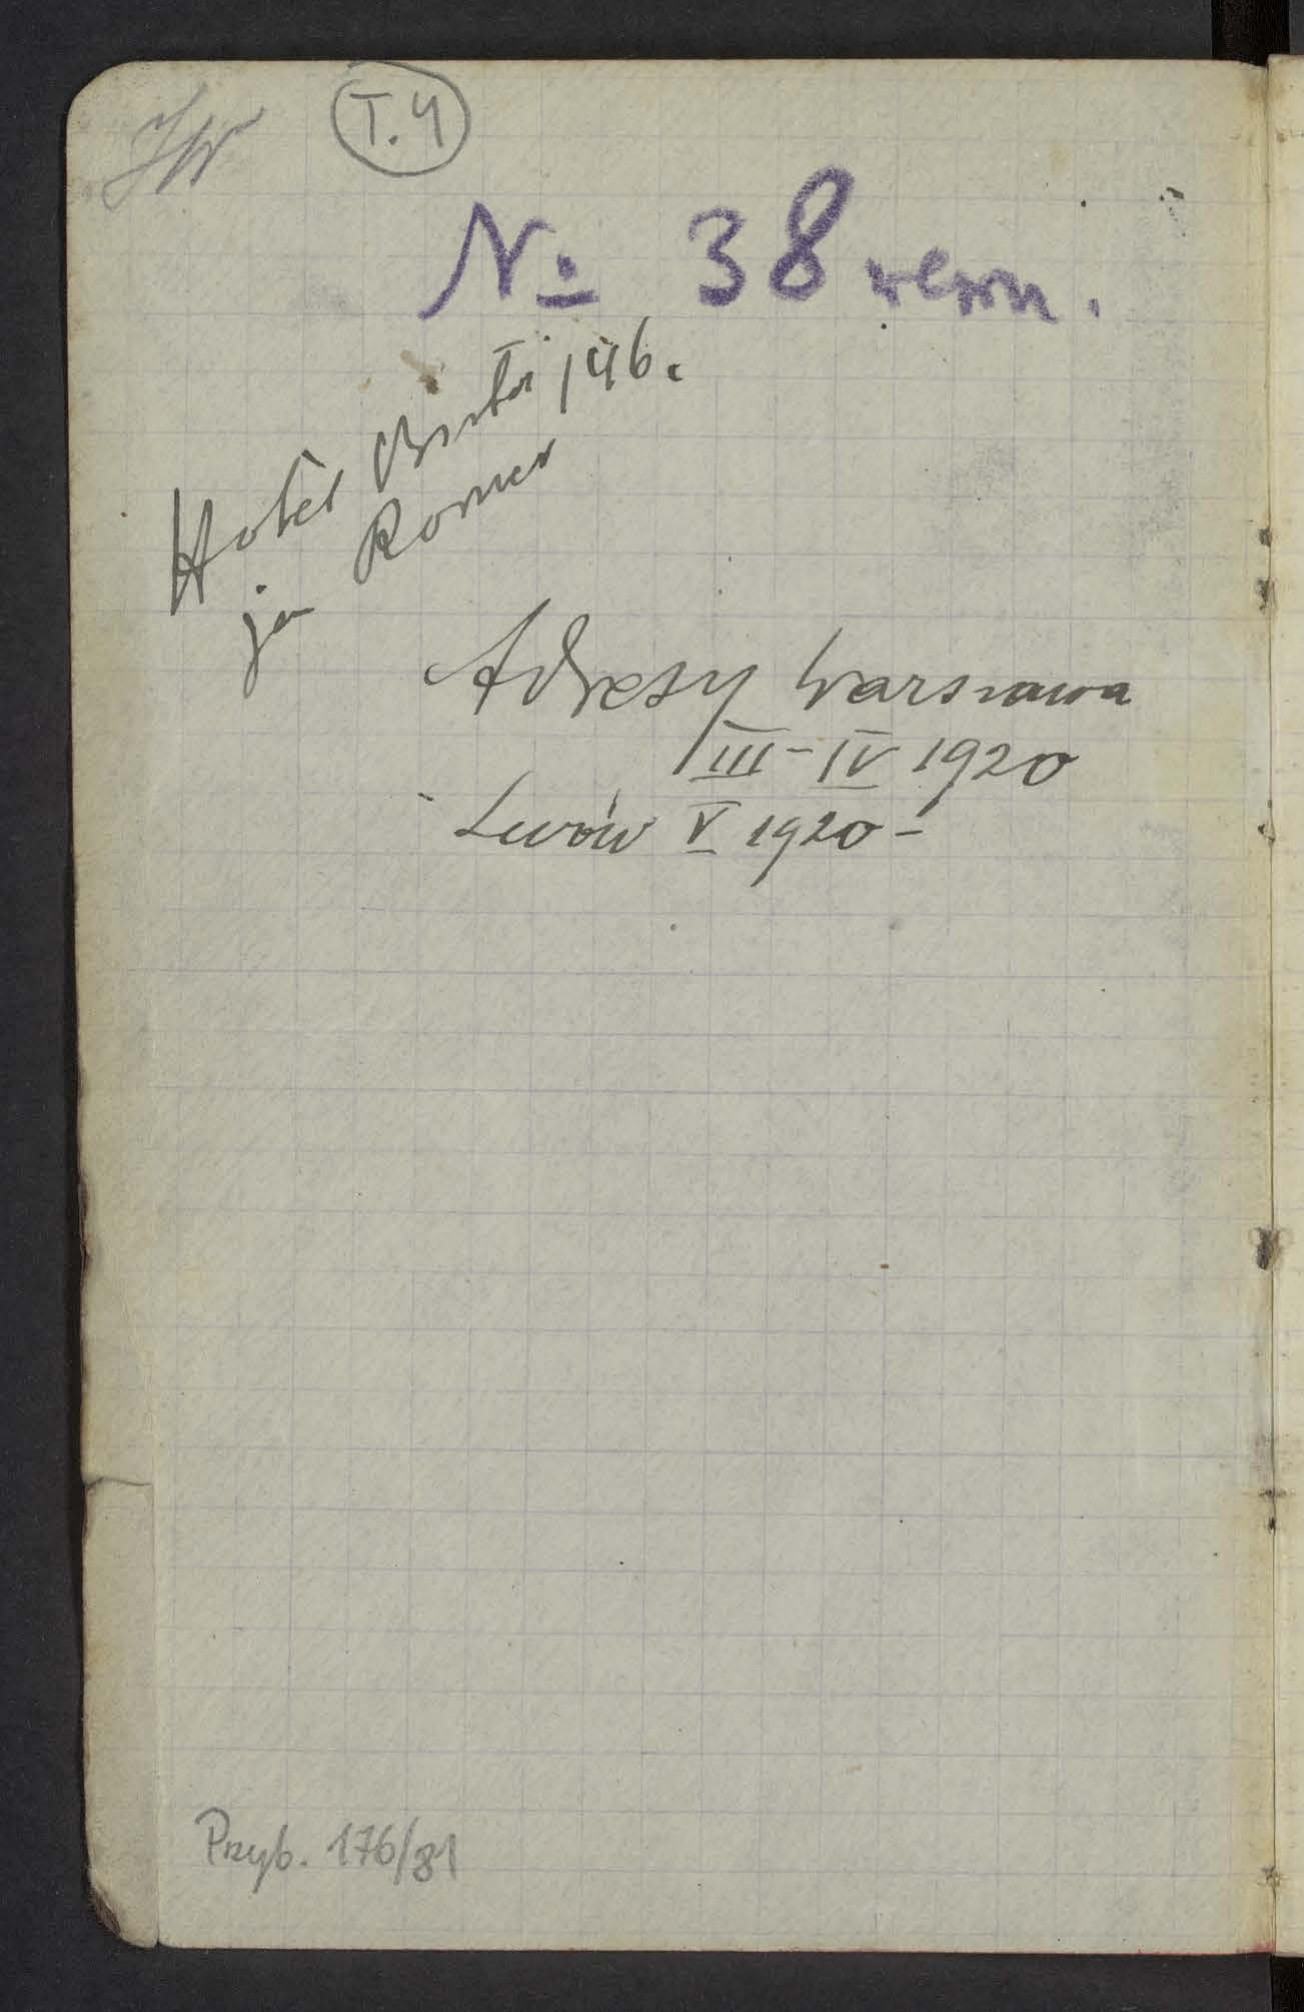 T. 4
№ 38 wewn.
Hotel Bristol 146.
ja Romer
Adresy Warszawa
III-IV 1920
Lwów V 1920 -
Przyb. 176/81